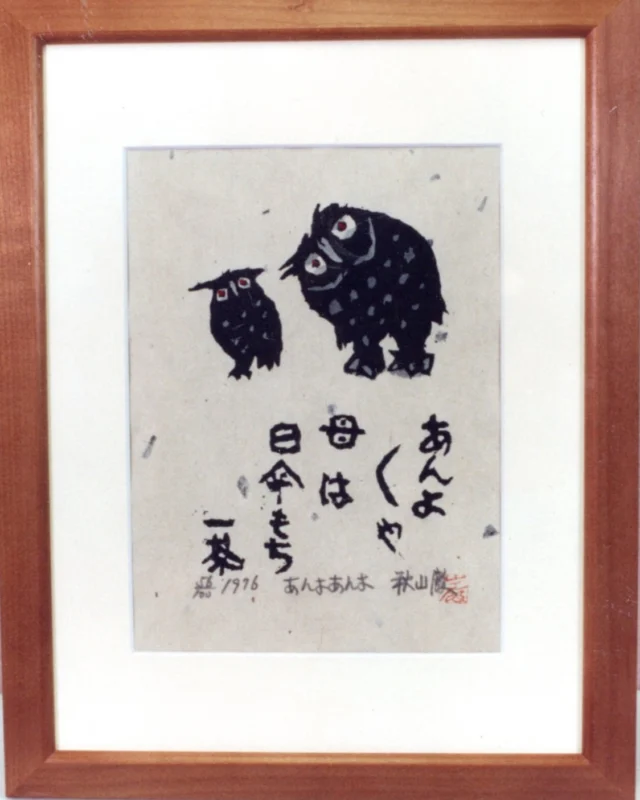 あんよ
〱や
母は
日傘もち
一茶
1976 あんよあんよ 秋山巌